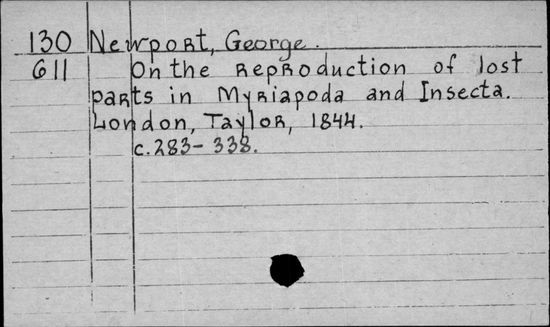 130 Newport, George.
611 On the reproduction of lost
parts in Myriapoda and Insecta.
London, Taylor, 1844.
c.283-338.